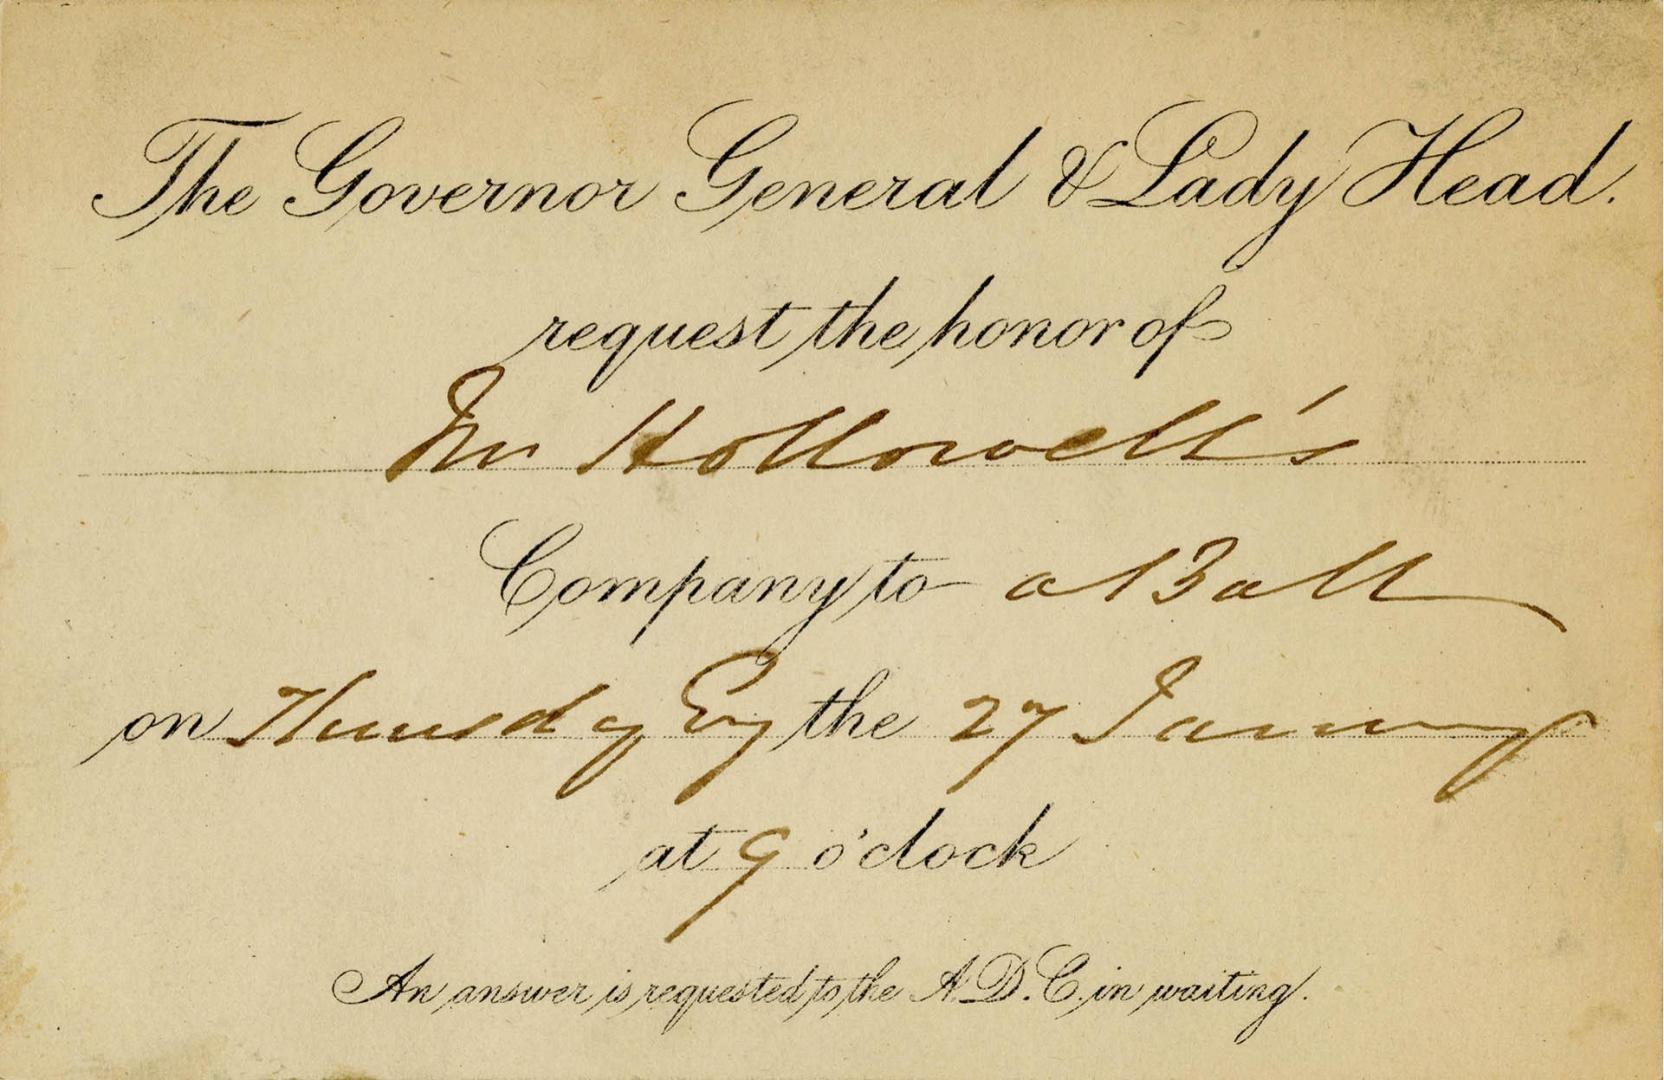 The Governor General & Lady Head.
request the honor of
Mr Hollowell's
Company to a Ball
on Thursday Evg the 27 January
at 9 o'clock
An answer is requested to the A.D.C. in waiting.